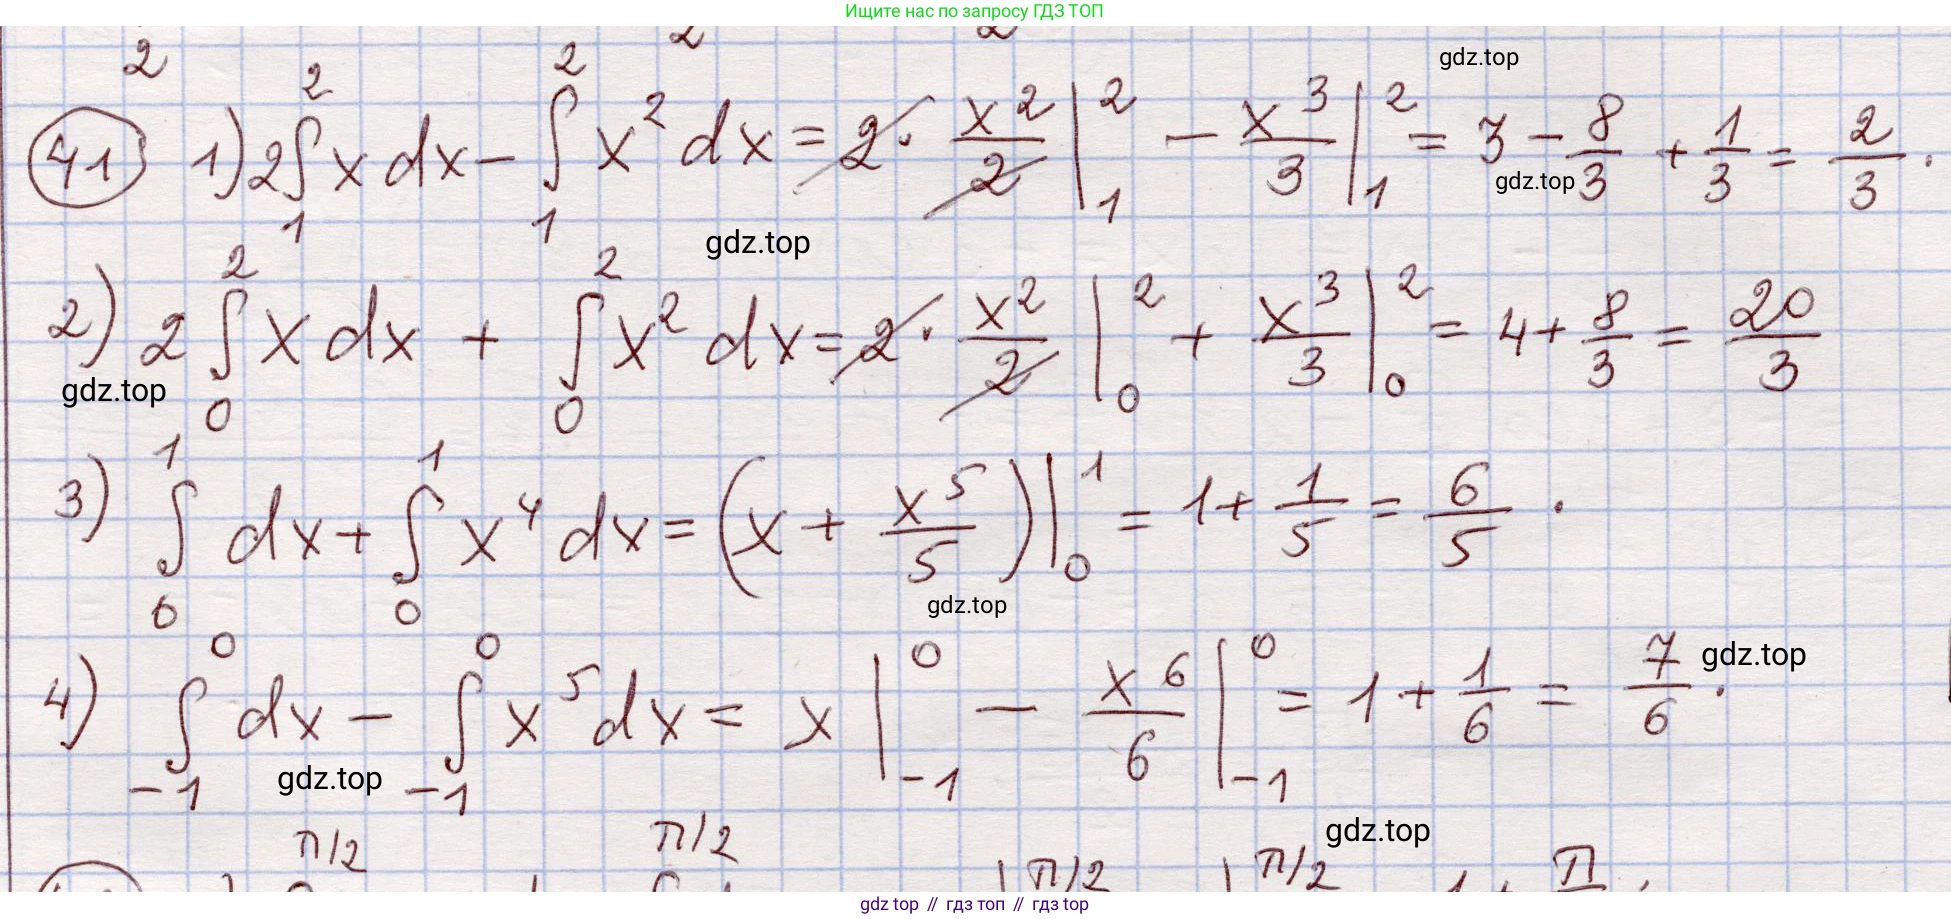 Ищите нас по запросу ГДЗ ТОП
2 2 2
gdz.top
41) 1) 2∫₁² x dx − ∫₁² x² dx = 2 · x²/2 |₁² − x³/3 |₁² = 3 − 8/3 + 1/3 = 2/3.
gdz.top
gdz.top
2) 2∫₀² x dx + ∫₀² x² dx = 2 · x²/2 |₀² + x³/3 |₀² = 4 + 8/3 = 20/3
gdz.top
3) ∫₀¹ dx + ∫₀¹ x⁴ dx = (x + x⁵/5) |₀¹ = 1 + 1/5 = 6/5.
gdz.top
4) ∫₋₁⁰ dx − ∫₋₁⁰ x⁵ dx = x |₋₁⁰ − x⁶/6 |₋₁⁰ = 1 + 1/6 = 7/6.
gdz.top
gdz.top
gdz.top
π/2 π/2 π/2 π/2 π
gdz top // гдз топ // gdz top